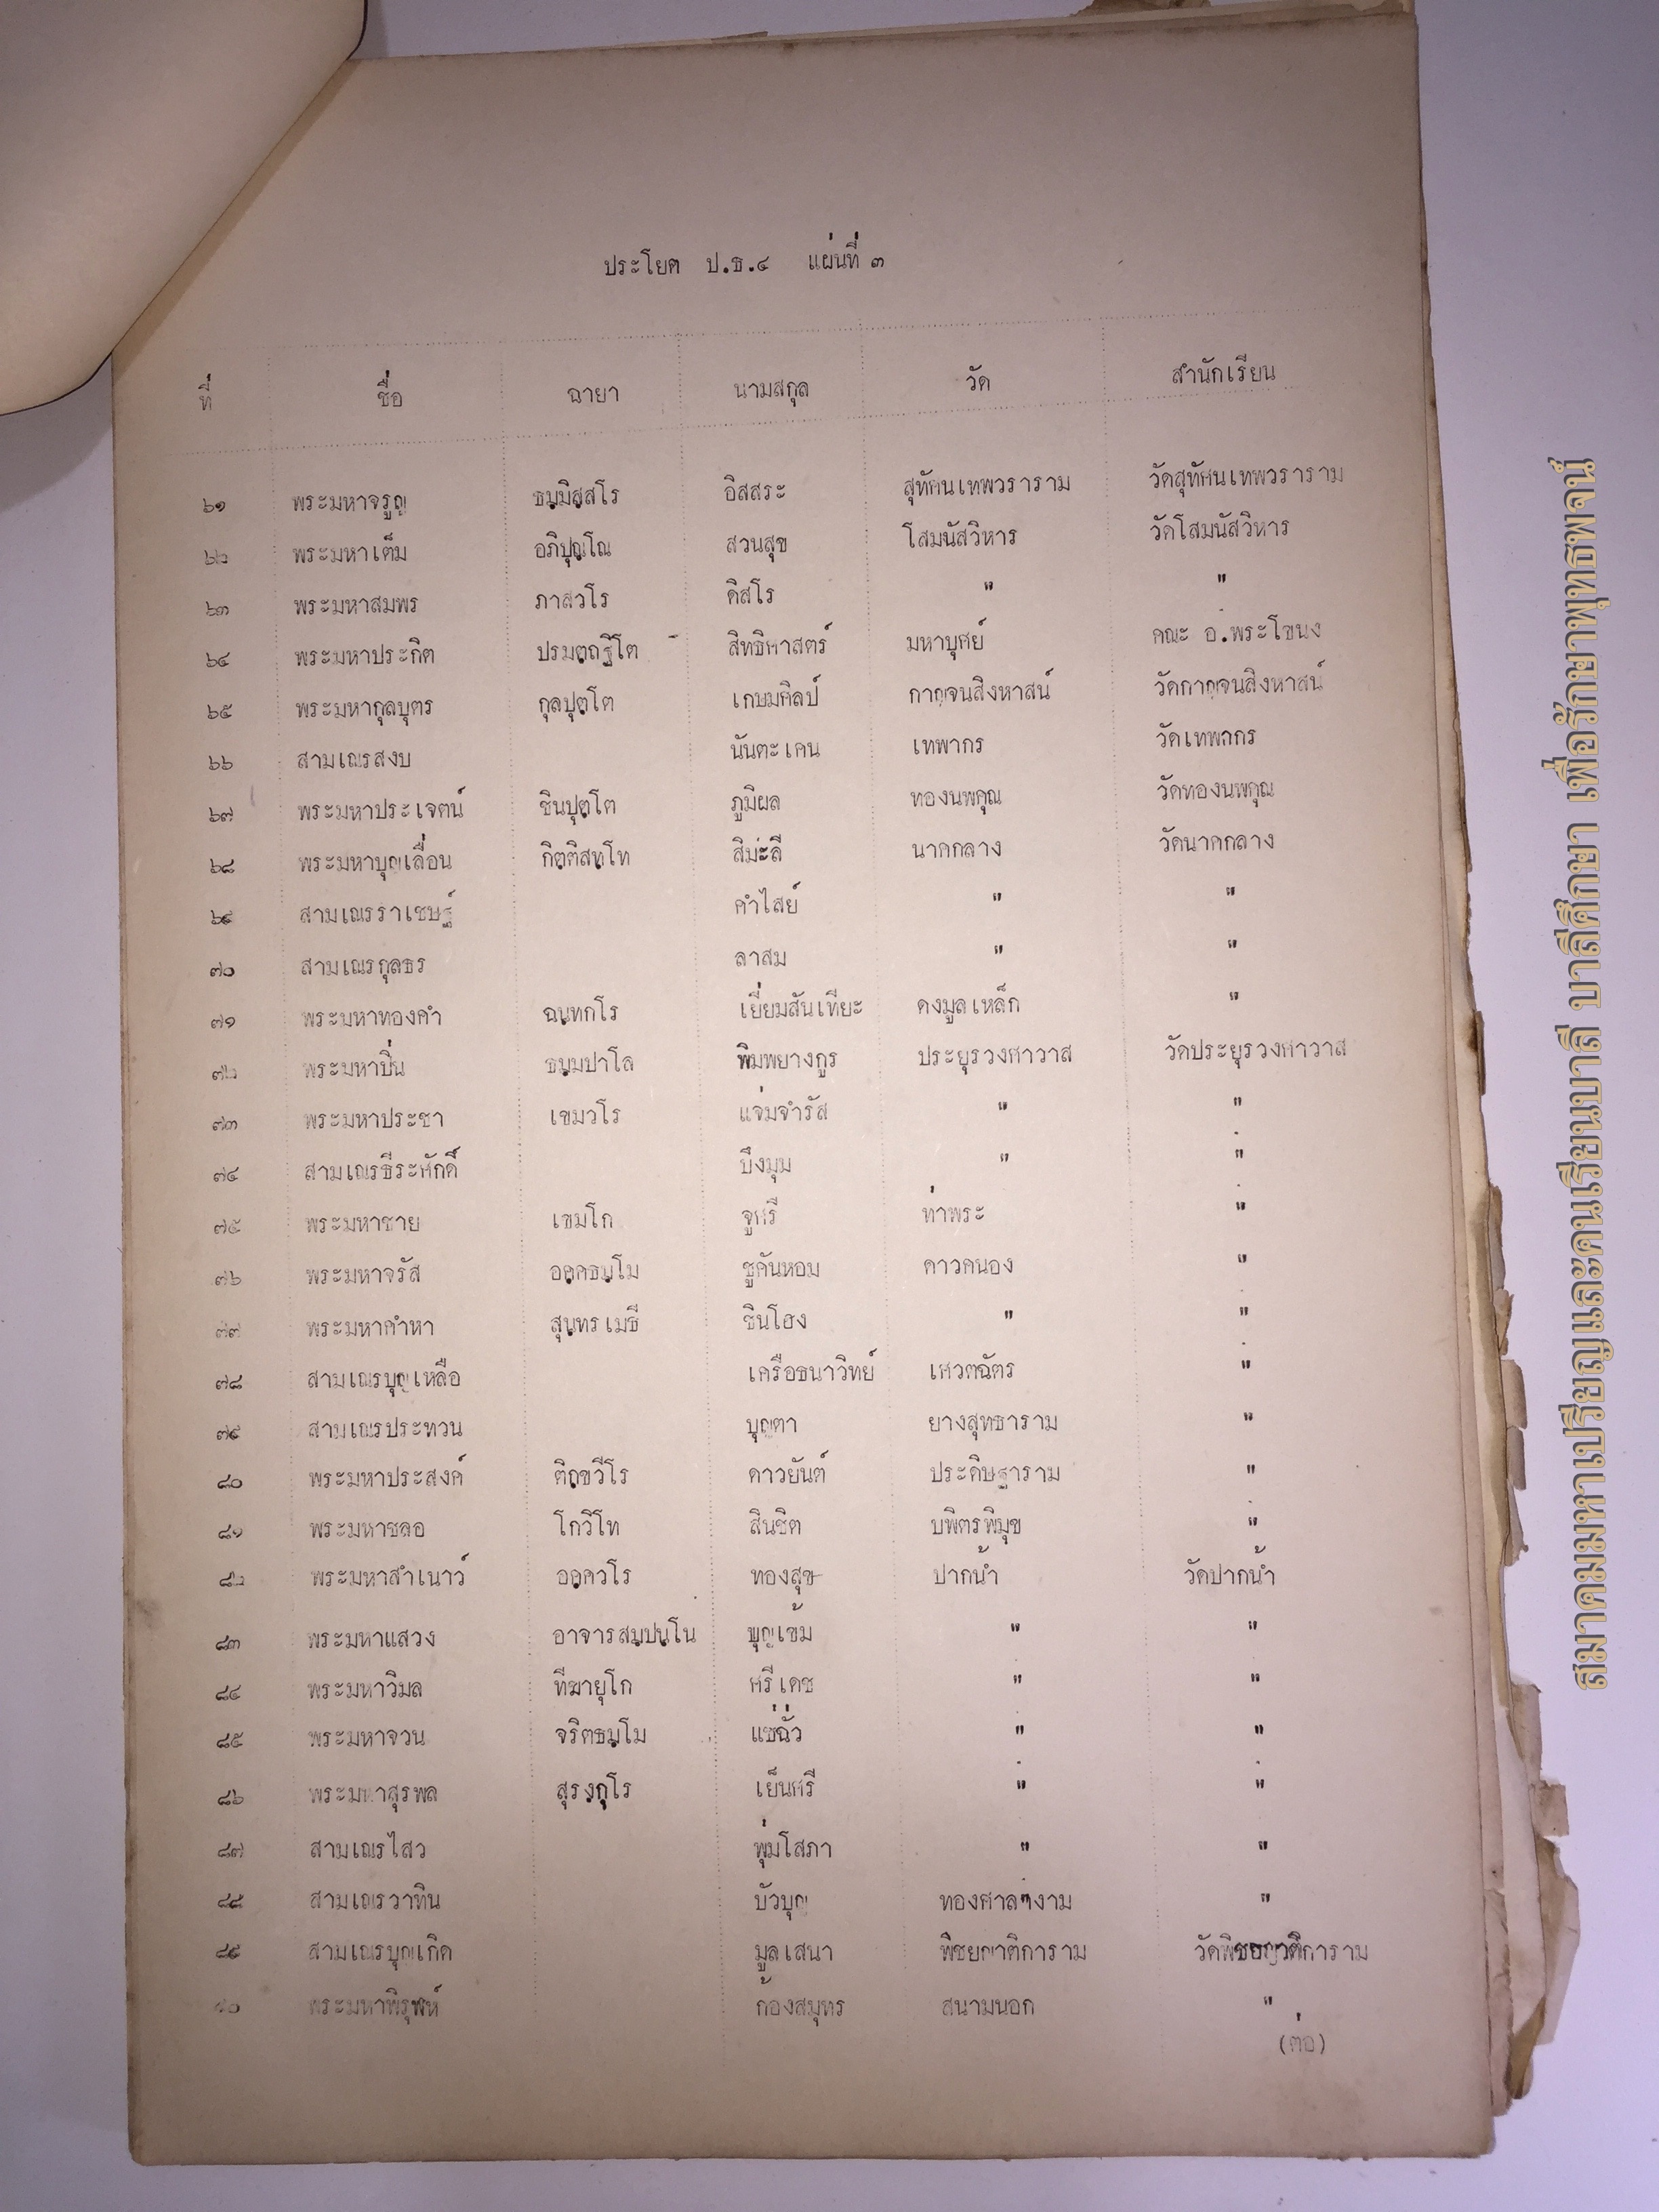 ประโยค ป.ธ.๔ แผ่นที่ ๓
ที่ ชื่อ ฉายา นามสกุล วัด สำนักเรียน
๖๑ พระมหาจรูญ ธมฺมิสฺสโร อิสสระ สุทัศนเทพวราราม วัดสุทัศนเทพวราราม
๖๒ พระมหาเต็ม อภิปุณฺโณ สวนสุข โสมนัสวิหาร วัดโสมนัสวิหาร
๖๓ พระมหาสมพร ภาสวโร ดิสโร " "
๖๔ พระมหาประกิต ปรมตฺถฐิโต สิทธิศาสตร์ มหาบุศย์ คณะ อ.พระโขนง
๖๕ พระมหากุลบุตร กุลปุตฺโต เกษมศิลป์ กาญจนสิงหาสน์ วัดกาญจนสิงหาสน์
๖๖ สามเณรสงบ นันตะเคน เทพากร วัดเทพากร
๖๗ พระมหาประเจตน์ ชินปุตฺโต ภูมิผล ทองนพคุณ วัดทองนพคุณ
๖๘ พระมหาบุญเลื่อน กิตฺติสทฺโท สิม่ะลี นาคกลาง วัดนาคกลาง
๖๙ สามเณรราเชษฐ์ คำไสย์ " "
๗๐ สามเณรกุลธร ลาสม " "
๗๑ พระมหาทองคำ ฉนฺทกโร เยี่ยมสันเทียะ ดงมูลเหล็ก "
๗๒ พระมหาปิ่น ธมฺมปาโล พิมพยางกูร ประยุรวงศาวาส วัดประยุรวงศาวาส
๗๓ พระมหาประชา เขมวโร แจ่มจำรัส " "
๗๔ สามเณรธีระศักดิ์ บึงมุม " "
๗๕ พระมหาชาย เขมโก จูศรี ท่าพระ "
๗๖ พระมหาจรัส อคฺคธมฺโม ชูคันหอม ดาวคนอง "
๗๗ พระมหาคำหา สุนฺทรเมธี ชินโฮง " "
๗๘ สามเณรบุญเหลือ เครือธนาวิทย์ เศวตฉัตร "
๗๙ สามเณรประทวน บุญตา ยางสุทธาราม "
๘๐ พระมหาประสงค์ ติกฺขวีโร ดาวยันต์ ประดิษฐาราม "
๘๑ พระมหาชลอ โกวิโท สินชิต บพิตรพิมุข "
๘๒ พระมหาสำเนาว์ อคฺควโร ทองสุข ปากน้ำ วัดปากน้ำ
๘๓ พระมหาแสวง อาจารสมฺปนฺโน บุญเข้ม " "
๘๔ พระมหาวิมล ทีฆายุโก ศรีเดช " "
๘๕ พระมหาจวน จริตธมฺโม แซ่ฉั่ว " "
๘๖ พระมหาสุรพล สุรงฺกุโร เย็นศรี " "
๘๗ สามเณรไสว พุ่มโสภา " "
๘๘ สามเณรวาทิน บัวบุญ ทองศาลางาม "
๘๙ สามเณรบุญเกิด มูลเสนา พิชยญาติการาม วัดพิชยญาติการาม
๙๐ พระมหาพิรุฬห์ ก้องสมุทร สนามนอก "
(ต่อ)
สมาคมมหาเปรียญและคนเรียนบาลี บาลีศึกษา เพื่อรักษาพุทธพจน์